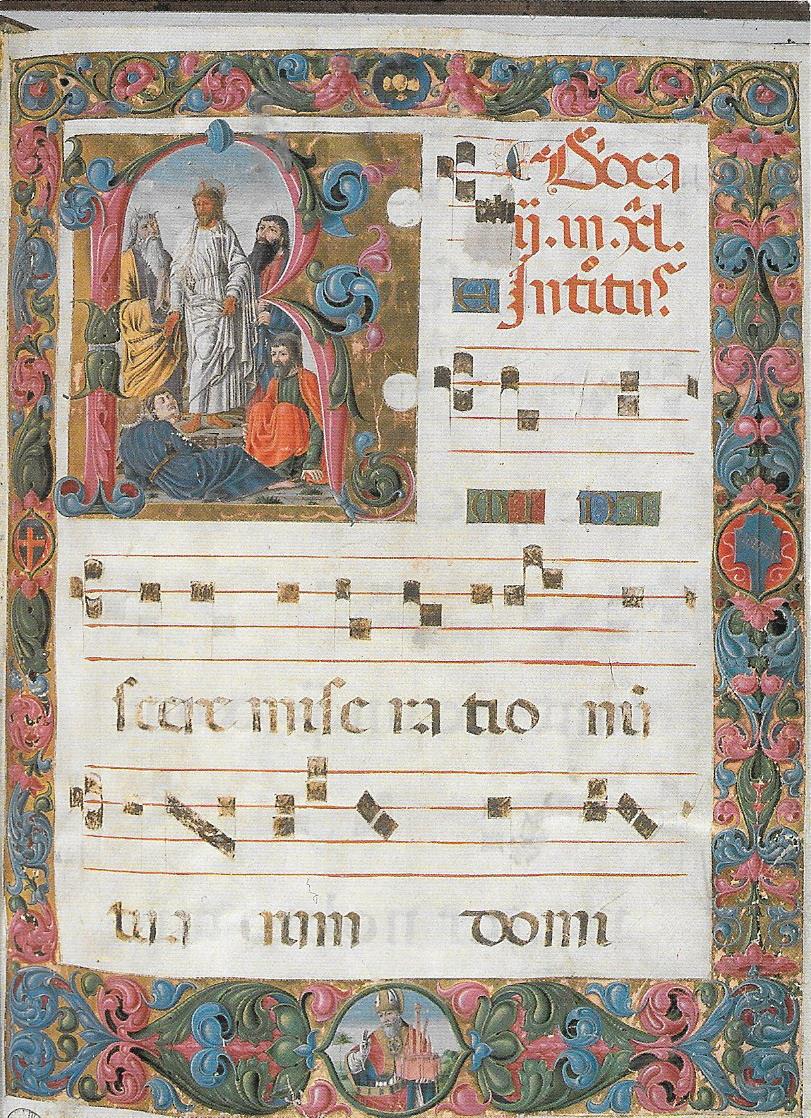 R Doca
ij. in. xl.
E Intitus
scere mise ra tio nū
tua rum domi